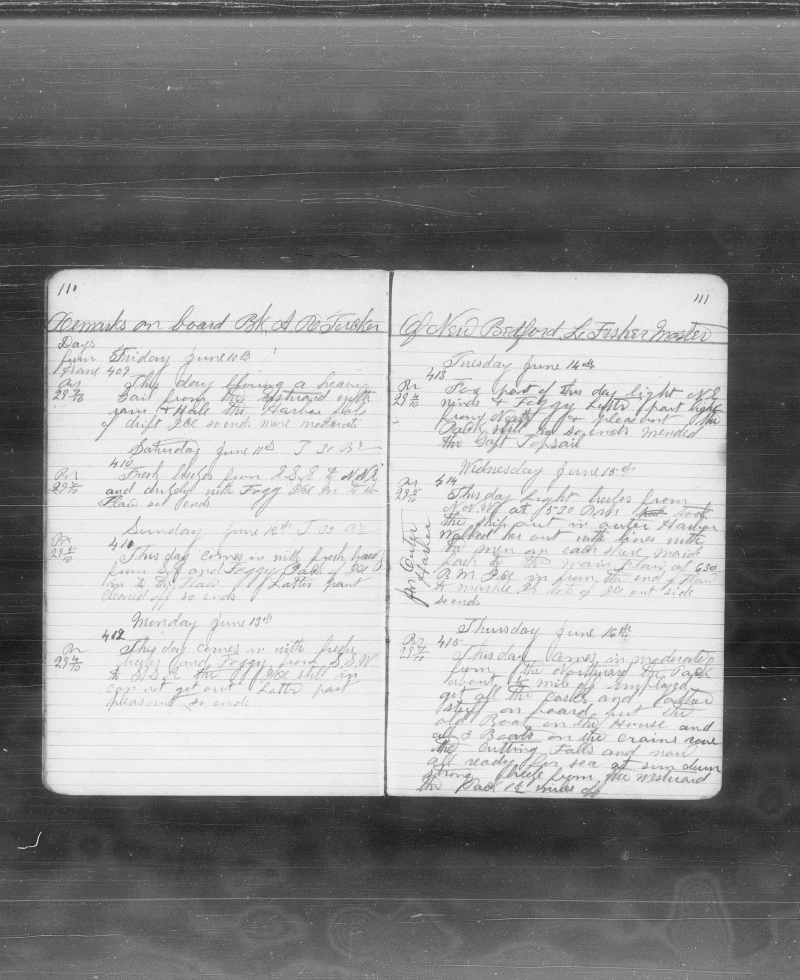 110
Remarks on board Bk A R Tucker
Days
from Friday June 10th
Home 409
Br This day a heavy
29 /10 Gail from the Eastward with
rain & Hale the Harbor full
of drift ICE so ends more moderate
Saturday June 11th
410
Br Fresh breeze from E.S.E to N.N.E
29 /10 and drizely with Fogg ICE in to the
so ends
Sunday June 12th
Br 411
29 /10 This day comes in with fresh breeze
from S.E and Foggy Pack of ICE
in to the Latter part
cleared off so ends
Monday June 13th
412
Br This day comes in with fresh
29 /10 breeze and Foggy from S.S.W
to S.S.E the ICE still in
can not get out Latter part
pleasant so ends
111
Of New Bedford L. Fisher Master
Tuesday June 14th
413
Br part of this day light N.E
29 /10 winds & Foggy Latter part light
from North & pleasant the
Pack still in so ends mended
the Gaft Topsail
Wednesday June 15th
Br 414
29 /10 This day Light breeze from
N.N.W at 5.30 A.M. took
the ship out in outer Harbor
Walked her out with lines with
the men on each shore, made
fast to the main at 630
A M ICE in from the end of
to marble Is lots of ICE out side
so ends
In Outer
Harbor
Thursday June 16th
Br 415
29 /10 This day comes in moderate
from the Northward the Pack
about mile off Employed
get all the casks and
on board put the
old Boat on the House and
all 3 Boats on the crains rove
the Cutting Falls and now
all ready for sea at sun down
strong breeze from the Westward
the Pack 12 miles off